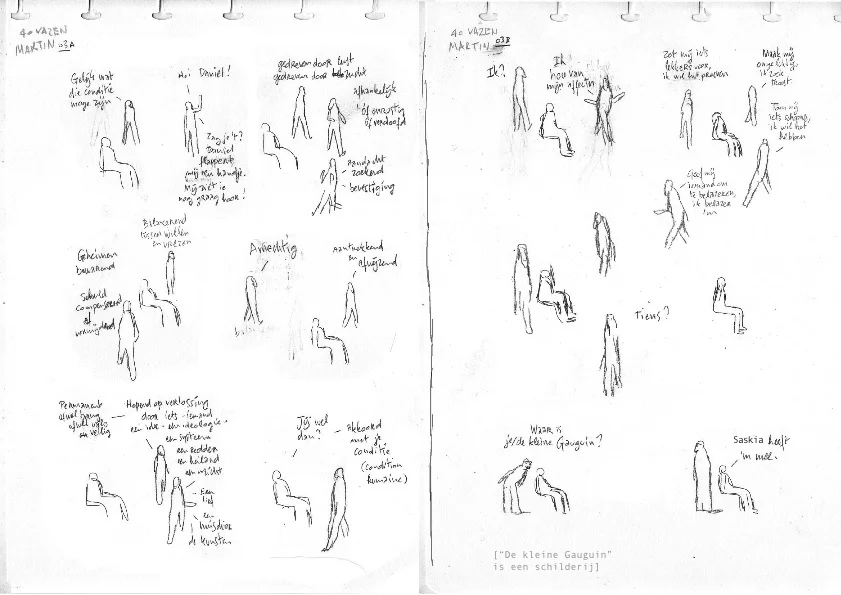 40 VAZEN
MARTIN 03A
Gelijk wat
die conditie
moge zijn
Hoi Daniel!
Zag je 't?
Daniel
flapperde
mij een handje.
Mij ziet ie
nog graag hoor!
gedreven door lust
gedreven door zucht
afhankelijk
of onrustig
of verdoofd
Aandacht
zoekend
bevestiging
Balancerend
tussen willen
en vrezen
Geheimen
bewarend
Schuld
compenserend
of
vermijdend
Avrechtig
Aantrekkend
en
afwijzend
Permanent
en veilig
Hopend op verlossing
door iets - iemand
een idee - een ideologie -
een systeem
een redder
een heiland
een macht
Een
lief
een
huisdier
de kunsten
Jij wel
dan?
Akkoord
met je
conditie
(condition
humaine)
40 VAZEN
MARTIN 03B
Ik?
Ik
hou van
mijn affecten
Zet mij iets
lekkers voor,
ik wil het proeven
Maak mij
ongelukkig,
ik zoek
troost
Toon mij
iets schoons,
ik wil het
hebben
Geef mij
iemand om
te belazeren,
ik belazer
'm
Tiens?
Waar is
je/de kleine Gauguin?
Saskia heeft
'm mee.
["De kleine Gauguin"
is een schilderij]